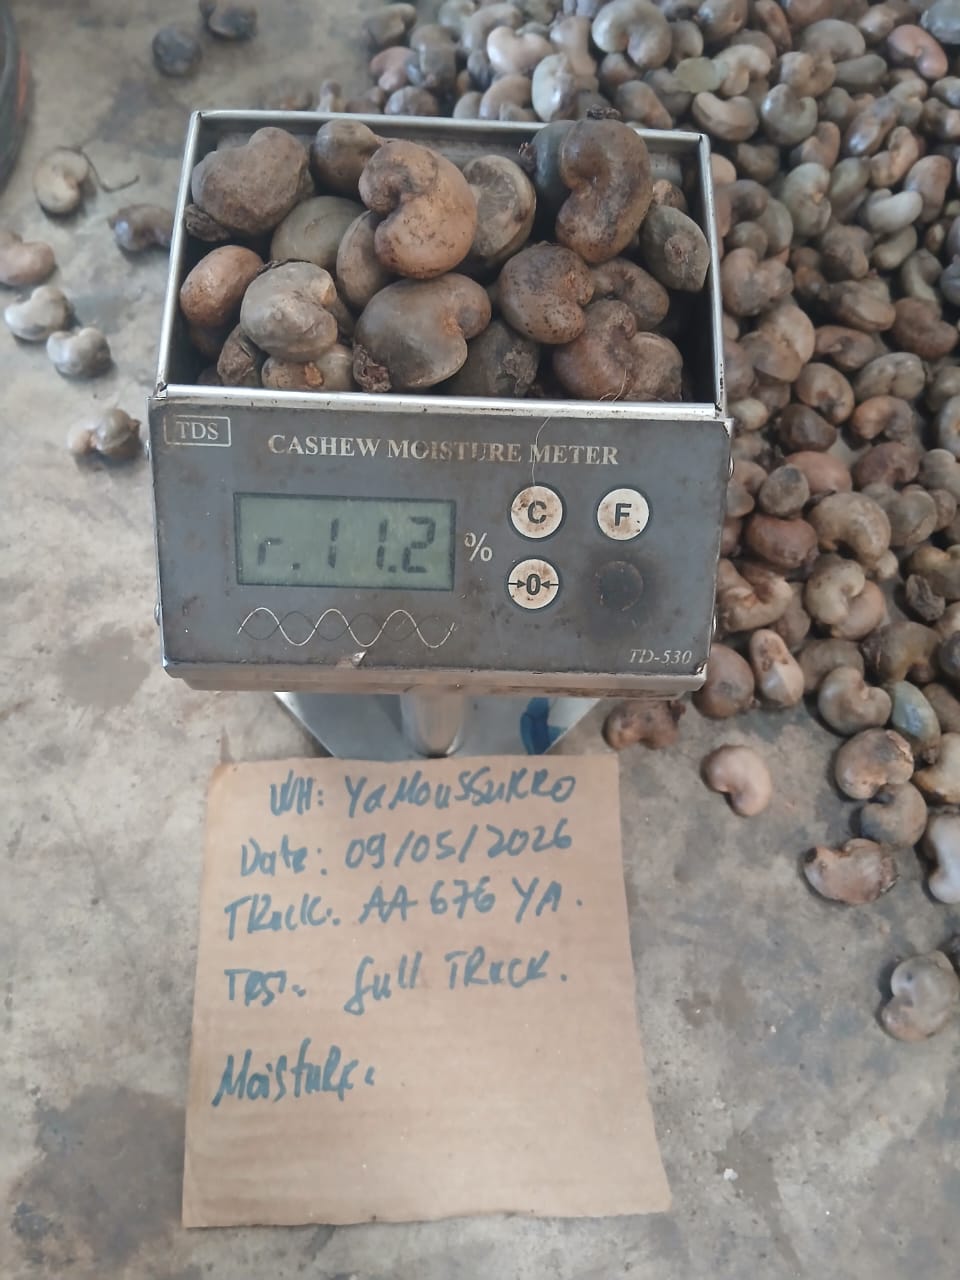 TDS
CASHEW MOISTURE METER
r.11.2 %
C
F
→0←
TD-530
WH: YaMoussukRo
Date: 09/05/2026
TRuck: AA 676 YA.
Test: full TRuck.
Moisture: